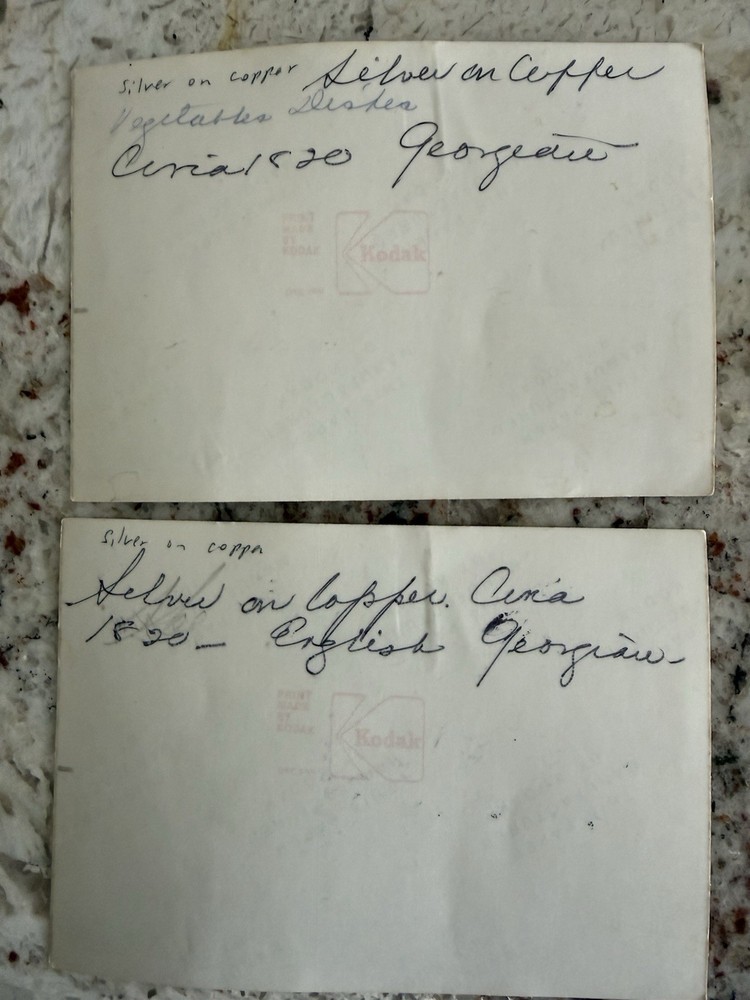 silver on copper Silver on Copper
Vegetables Dishes
Circa 1820 Georgean
PRINT
MADE
BY
KODAK
Kodak
silver on copper
Silver on Copper. Circa
1820— English Georgian—
PRINT
MADE
BY
KODAK
Kodak